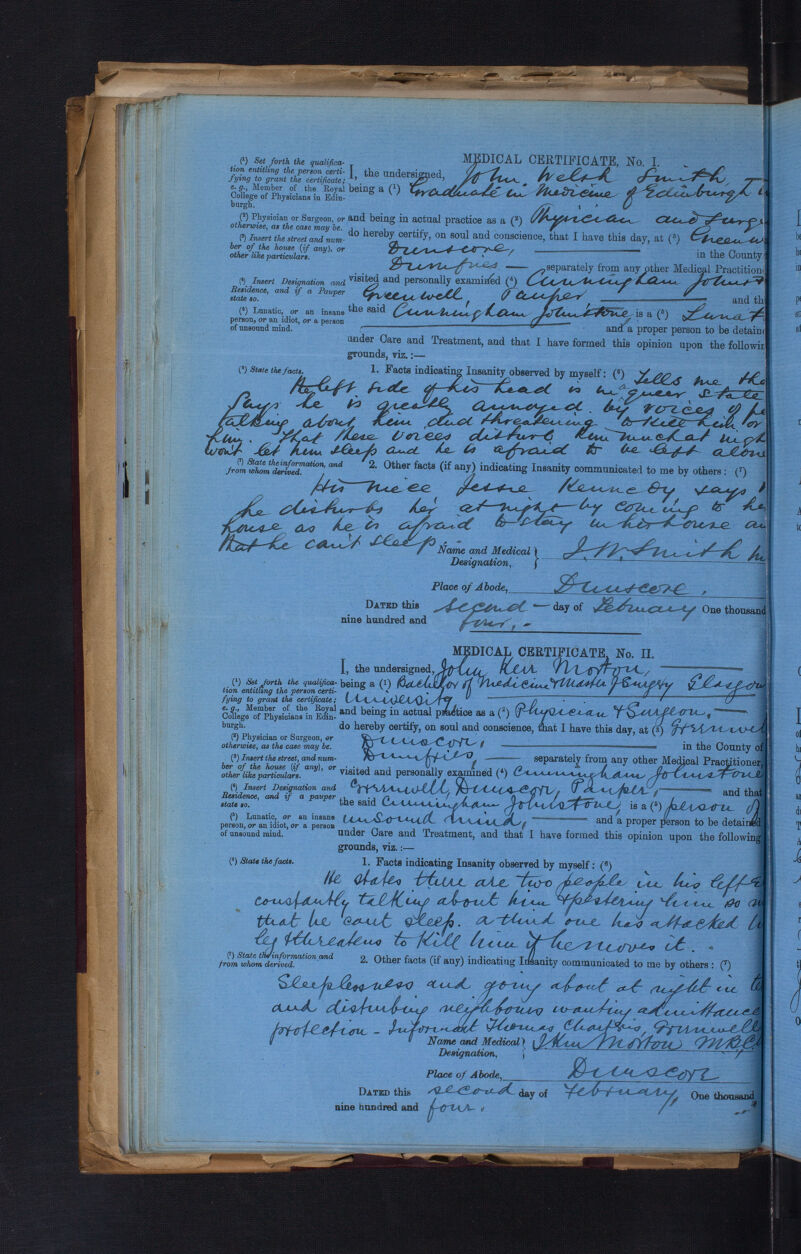 MEDICAL CERTIFICATE, No. I.
(1) Set forth the qualifica-
tion entitling the person certi-
fying to grant the certificate;
e.g., Member of the Royal
College of Physicians in Edin-
burgh.
(2) Physician or Surgeon, or
otherwise, as the case may be.
(3) Insert the street and num-
ber of the house (if any), or
other like particulars.
(4) Insert Designation and
Residence, and if a Pauper
state so.
(5) Lunatic, or an insane
person, or an idiot, or a person
of unsound mind.
I, the undersigned, John Welsh Smith
being a (1) Graduate in Medicine of Edinburgh
and being in actual practice as a (2) Physician and Surge
do hereby certify, on soul and conscience, that I have this day, at (3) Greenw
Dunscore, in the County
Dumfries separately from any other Medical Practition
visited and personally examined (4) Cunningham Johnst
Greenwell, Pauper, and th
the said Cunningham Johnstone, is a (5) Lunat
and a proper person to be detain
under Care and Treatment, and that I have formed this opinion upon the followin
grounds, viz.:—
(6) State the facts. 1. Facts indicating Insanity observed by myself: (6) Tells me tha
the left side of his head is in a queer state
Says he is greatly annoyed by voices of pe
talking about him and threatening to kill him or
him. That these voices disturb him much at nigh
won't let him sleep and he is afraid to be left alone
(7) State the information, and
from whom derived.
2. Other facts (if any) indicating Insanity communicated to me by others: (7)
His niece Jessie Kennedy says
he disturbs her at night by coming to he
house as he is afraid to stay in his house an
that he can't sleep.
Name and Medical
Designation, J. W. Smith
Place of Abode, Dunscore.
DATED this second day of February One thousand
nine hundred and four.
MEDICAL CERTIFICATE, No. II.
(1) Set forth the qualifica-
tion entitling the person certi-
fying to grant the certificate;
e.g., Member of the Royal
College of Physicians in Edin-
burgh.
(2) Physician or Surgeon, or
otherwise, as the case may be.
(3) Insert the street, and num-
ber of the house (if any), or
other like particulars.
(4) Insert Designation and
Residence, and if a pauper
state so.
(5) Lunatic, or an insane
person, or an idiot, or a person
of unsound mind.
I, the undersigned, John Kerr Morton,
being a (1) Bachelor of Medicine & Master of Surgery Glasgow
University
and being in actual practice as a (2) Physician & Surgeon,
do hereby certify, on soul and conscience, that I have this day, at (3) Greenwel
Dunscore, in the County of
Dumfries, separately from any other Medical Practitioner,
visited and personally examined (4) Cunningham Johnstone
Greenwell, Dunscore, Pauper, and that
the said Cunningham Johnstone, is a (5) person of
unsound mind, and a proper person to be detained
under Care and Treatment, and that I have formed this opinion upon the following
grounds, viz.:—
(6) State the facts. 1. Facts indicating Insanity observed by myself: (6)
He states there are two people in his left
constantly talking about him & pestering him so
that he can't sleep. A third one has attacked
leg & threatens to kill him if he moves it.
(7) State the information, and
from whom derived.
2. Other facts (if any) indicating Insanity communicated to me by others: (7)
Sleeplessness and going about at night in
and disturbing neighbours wanting admittance
protection - Informant Thomas Charters, Greenwell
Name and Medical
Designation, John Morton M.B.C
Place of Abode, Dunscore
DATED this second day of February, One thousand
nine hundred and four.